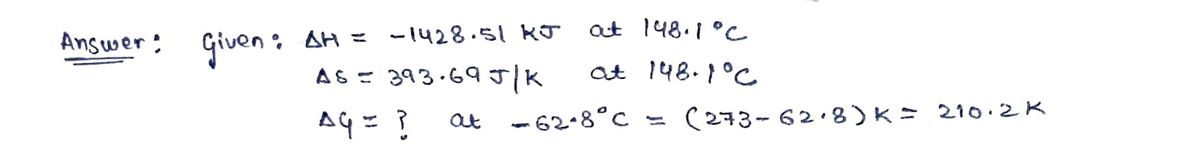 Answer: Given: ΔH = -1428.51 kJ at 148.1°C
ΔS = 393.69 J/K at 148.1°C
ΔG = ? at -62.8°C = (273-62.8)K = 210.2K